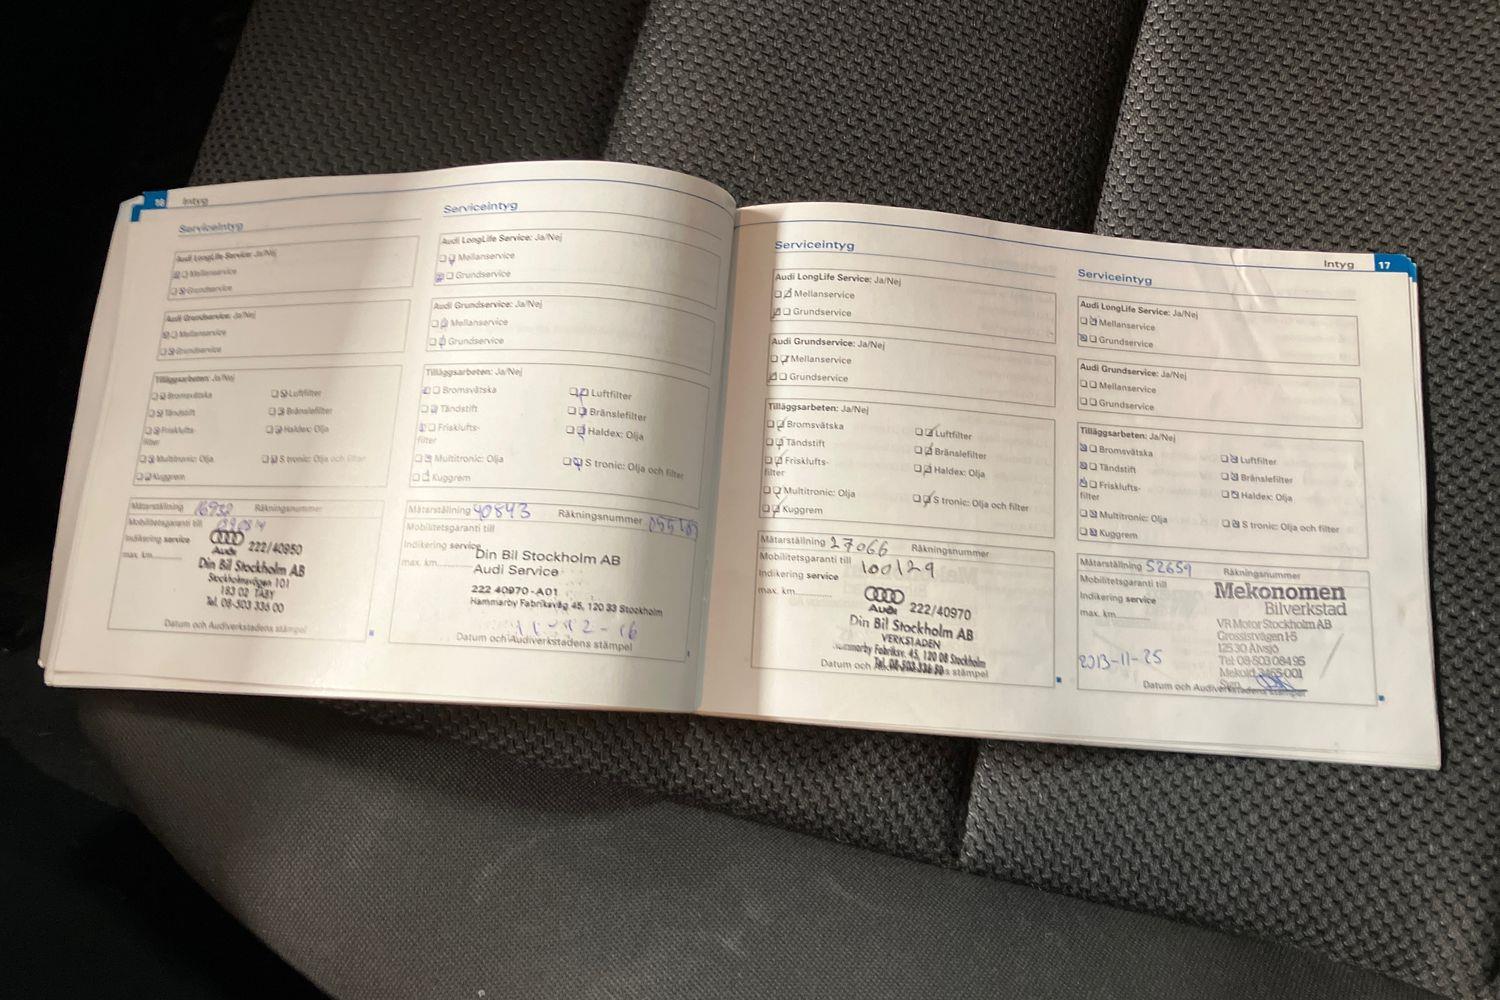 16 Intyg
Serviceintyg
Audi LongLife Service: Ja/Nej
Mellanservice
Grundservice
Audi Grundservice: Ja/Nej
Mellanservice
Grundservice
Tilläggsarbeten: Ja/Nej
Bromsvätska Luftfilter
Tändstift Bränslefilter
Frisklufts- Haldex: Olja
filter
Multitronic: Olja S tronic: Olja och filter
Kuggrem
Mätarställning 16932 Räkningsnummer
Mobilitetsgaranti till 090814
Indikering service
max. km
Audi 222/40950
Din Bil Stockholm AB
Stockholmsvägen 101
183 02 TÄBY
Tel. 08-503 336 00
Datum och Audiverkstadens stämpel
Serviceintyg
Audi LongLife Service: Ja/Nej
Mellanservice
Grundservice
Audi Grundservice: Ja/Nej
Mellanservice
Grundservice
Tilläggsarbeten: Ja/Nej
Bromsvätska Luftfilter
Tändstift Bränslefilter
Frisklufts- Haldex: Olja
filter
Multitronic: Olja S tronic: Olja och filter
Kuggrem
Mätarställning 40843 Räkningsnummer
Mobilitetsgaranti till
Indikering service
max. km
Din Bil Stockholm AB
Audi Service
222 40970-A01
Hammarby Fabriksväg 45, 120 33 Stockholm
11-12-16
Datum och Audiverkstadens stämpel
Serviceintyg
Audi LongLife Service: Ja/Nej
Mellanservice
Grundservice
Audi Grundservice: Ja/Nej
Mellanservice
Grundservice
Tilläggsarbeten: Ja/Nej
Bromsvätska Luftfilter
Tändstift Bränslefilter
Frisklufts- Haldex: Olja
filter
Multitronic: Olja S tronic: Olja och filter
Kuggrem
Mätarställning 27066 Räkningsnummer
Mobilitetsgaranti till 100129
Indikering service
max. km
Audi 222/40970
Din Bil Stockholm AB
VERKSTADEN
Hammarby Fabriksv. 45, 120 08 Stockholm
Tel. 08-503 336 50
Datum och Audiverkstadens stämpel
Intyg 17
Serviceintyg
Audi LongLife Service: Ja/Nej
Mellanservice
Grundservice
Audi Grundservice: Ja/Nej
Mellanservice
Grundservice
Tilläggsarbeten: Ja/Nej
Bromsvätska Luftfilter
Tändstift Bränslefilter
Frisklufts- Haldex: Olja
filter
Multitronic: Olja S tronic: Olja och filter
Kuggrem
Mätarställning 52659 Räkningsnummer
Mobilitetsgaranti till
Indikering service
max. km
Mekonomen
Bilverkstad
VR Motor Stockholm AB
Grossistvägen 1-5
125 30 Älvsjö
Tel: 08-503 084 95
Mekoid 3465 001
Sign
2013-11-25
Datum och Audiverkstadens stämpel